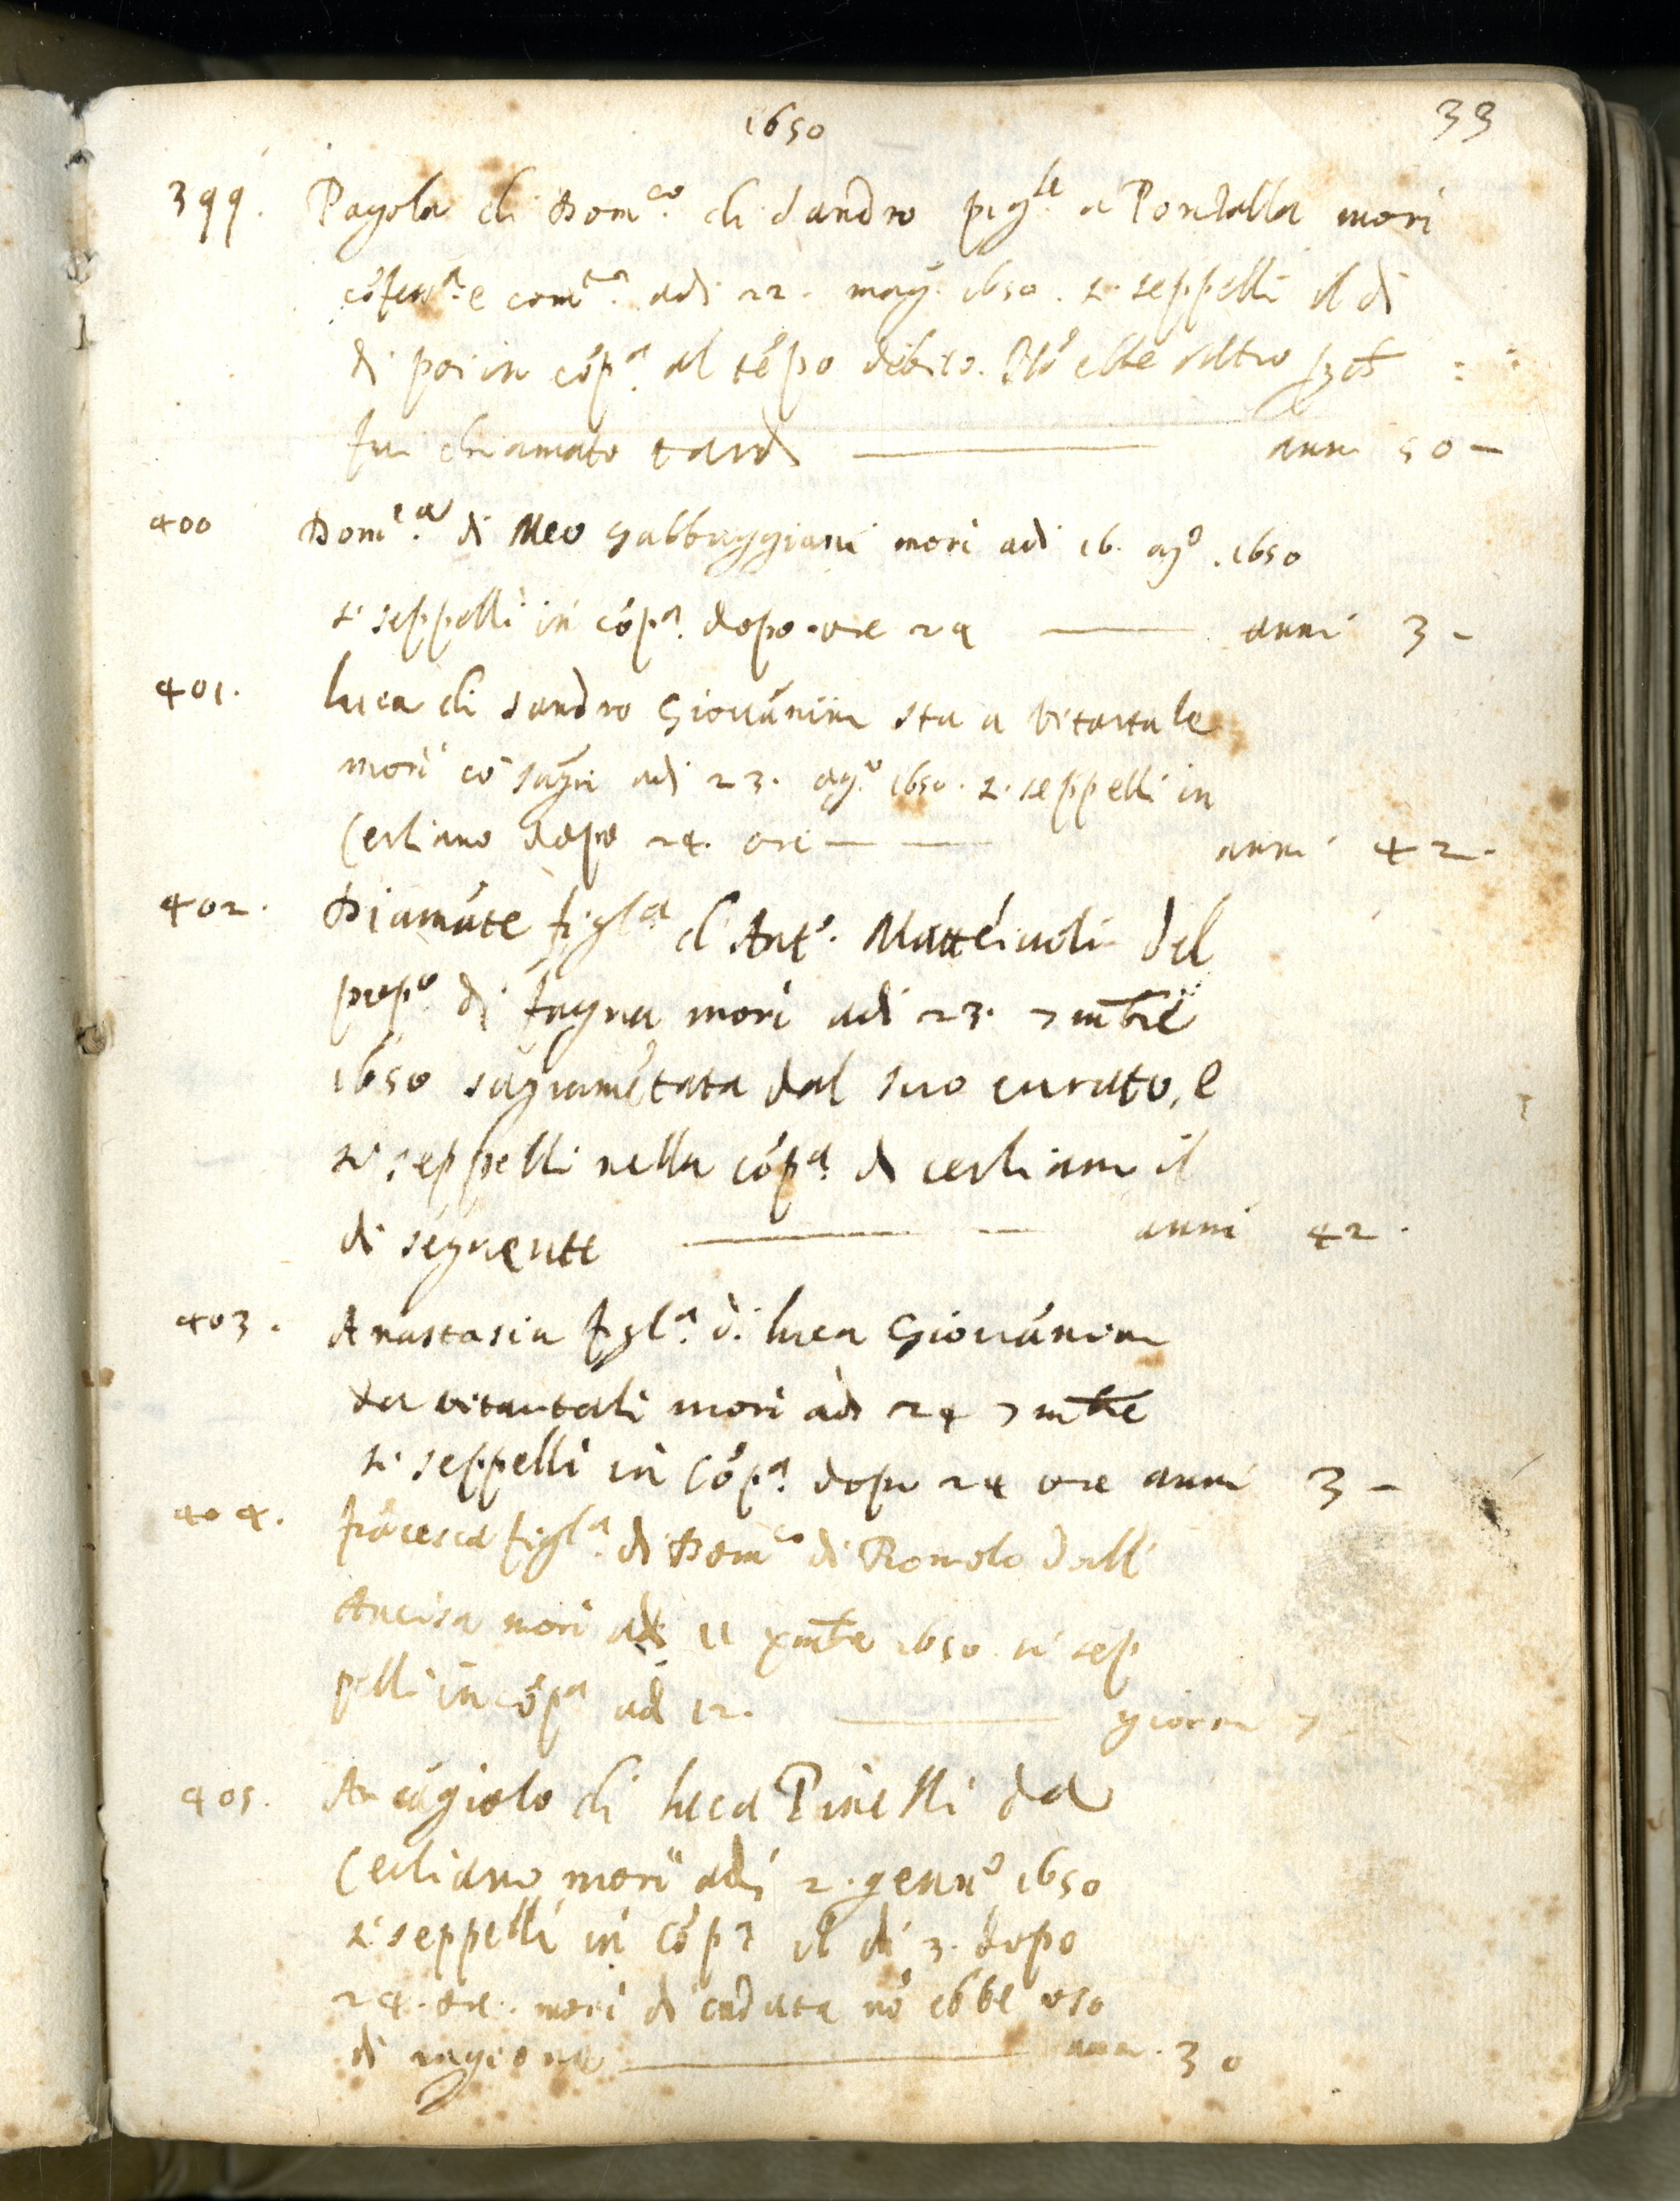 1650
33
399. Pagola di Dom.co di Sandro pig.le a Pontalla mori
cõfess.a e com.ta adi 22. mag. 1650. si seppelli il di
di poi in cõp.a al tẽpo debito. Nõ ebbe altro
fui chiamato tardi anni 50 -
400 Dom.ca di Meo Gabbuggiani mori adi 16. ag.o 1650
si seppelli in cõp.a dopo ore 24 anni 3 -
401. Luca di Sandro Giovãnini sta a Vitartale
mori cõ sagri adi 23. ag.o 1650. si seppelli in
Cerliano dopo 24. ore anni 42.
402. Diamãte figl.a d'Ant.o Matteiuoli del
pop.o di Fagna mori adi 23. 7mbre
1650 sagramẽtata dal suo curato, e
si seppelli nella cõp.a di cerliano il
di seguente anni 42.
403. Anastasia figl.a di Luca Giovãnini
da vitartali mori adi 24 7mbre
si seppelli in Cõp.a dopo 24 ore anni 3 -
404. frãcesca figl.a di Dom.co di Romolo dall'
Ancisa mori adi 11 xmbre 1650 si sep
pelli in cõp.a adi 12. giorni 7
405. Arcãgiolo di Luca Pinelli da
Cerliano mori adi 2. genn.o 1650
si seppelli in Cõp.a il di 3. dopo
24. ore. mori di caduta nõ ebbe uso
di ragione anni. 30